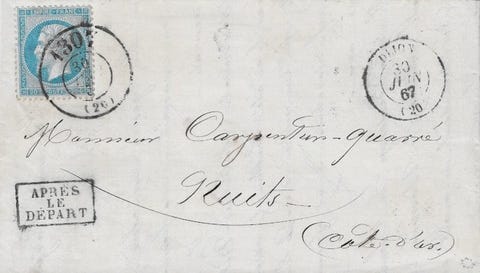 EMPIRE FRANC
1307
30
(20)
DIJON
30
JUIN
67
(20)
Monsieur Carpentier-Quarré
Nuits
(Côte-d'or)
APRÈS
LE
DÉPART